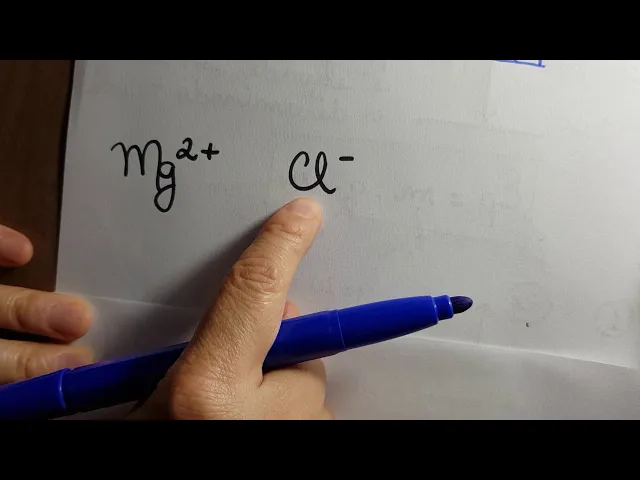 Mg²⁺ Cl⁻